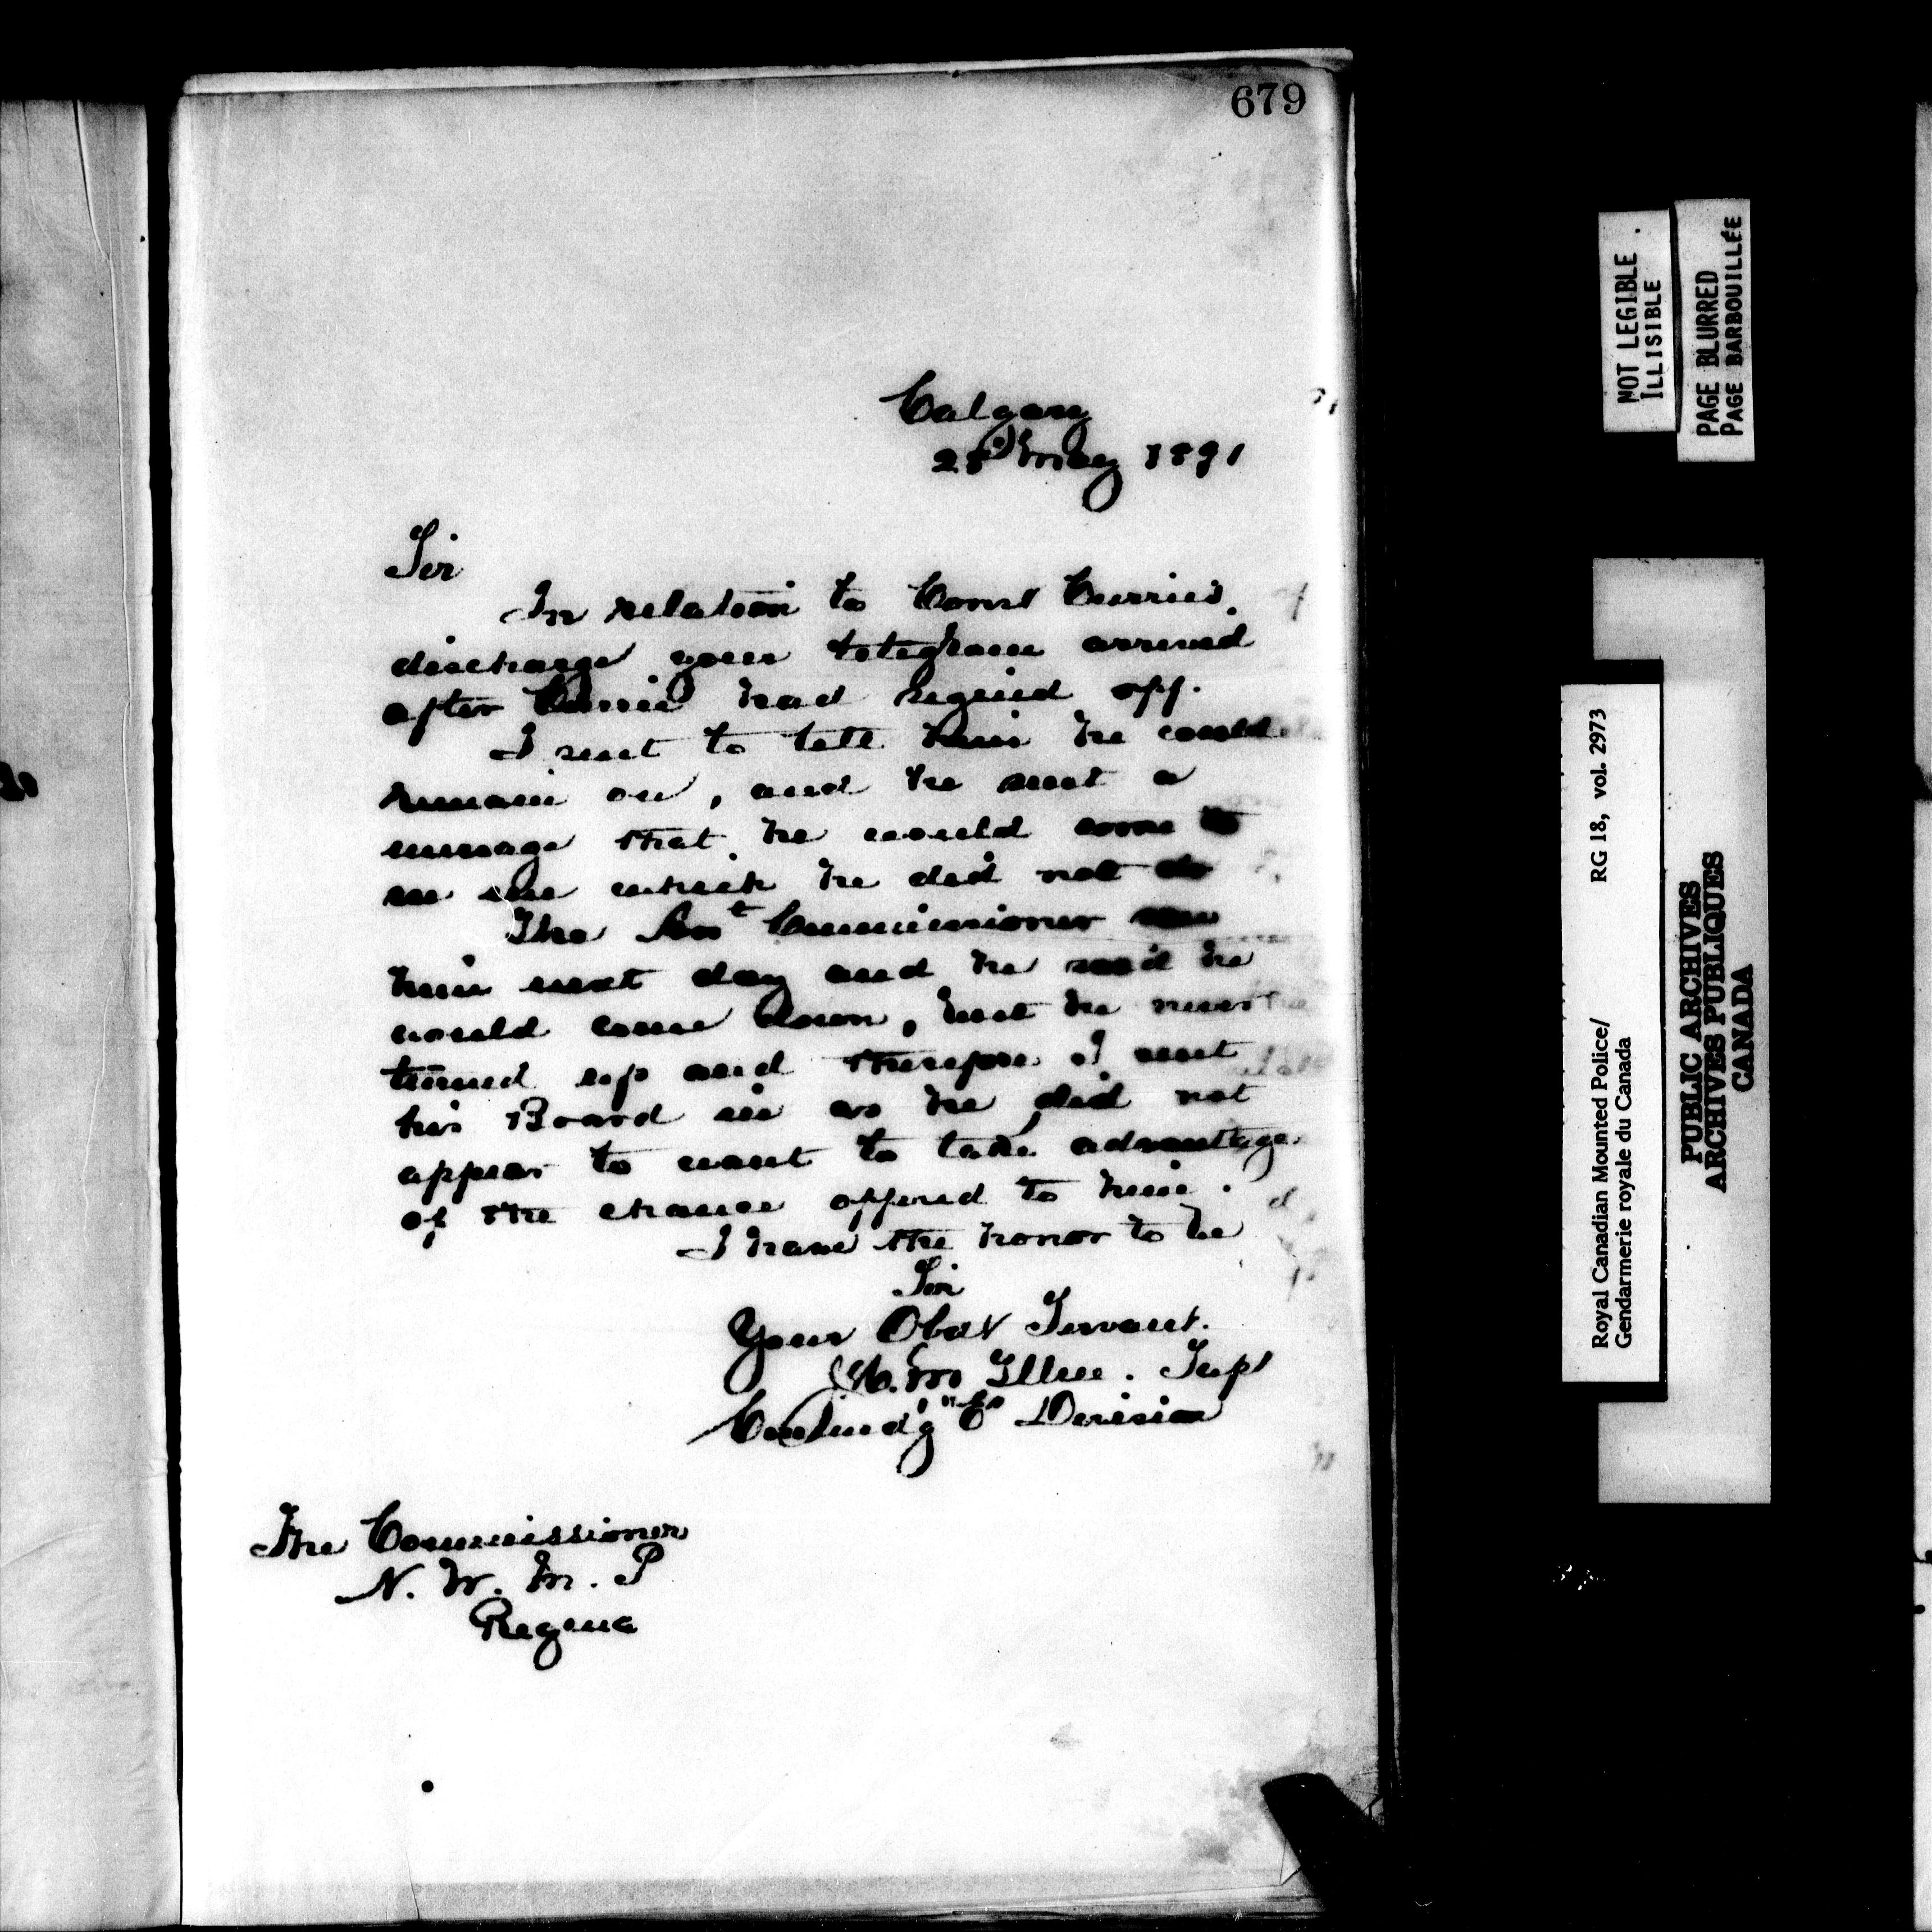 679
Calgary
28 May 1891
Sir
In relation to Const Currie's
discharge your telegram arrived
after Currie had signed off.
I sent to tell him he could
remain on, and he sent a
message that he would come to
see me which he did not do
The Asst Commissioner saw
him next day and he said he
would come down, but he never
turned up and therefore I sent
his Board in as he did not
appear to want to take advantage
of the chance offered to him.
I have the honor to be
Sir
Your Obdt Servant.
Supt
Commd'g "E" Division
The Commissioner
N. W. M. P
Regina
NOT LEGIBLE
ILLISIBLE
PAGE BLURRED
PAGE BARBOUILLÉE
Royal Canadian Mounted Police/ RG 18, vol. 2973
Gendarmerie royale du Canada
PUBLIC ARCHIVES
ARCHIVES PUBLIQUES
CANADA